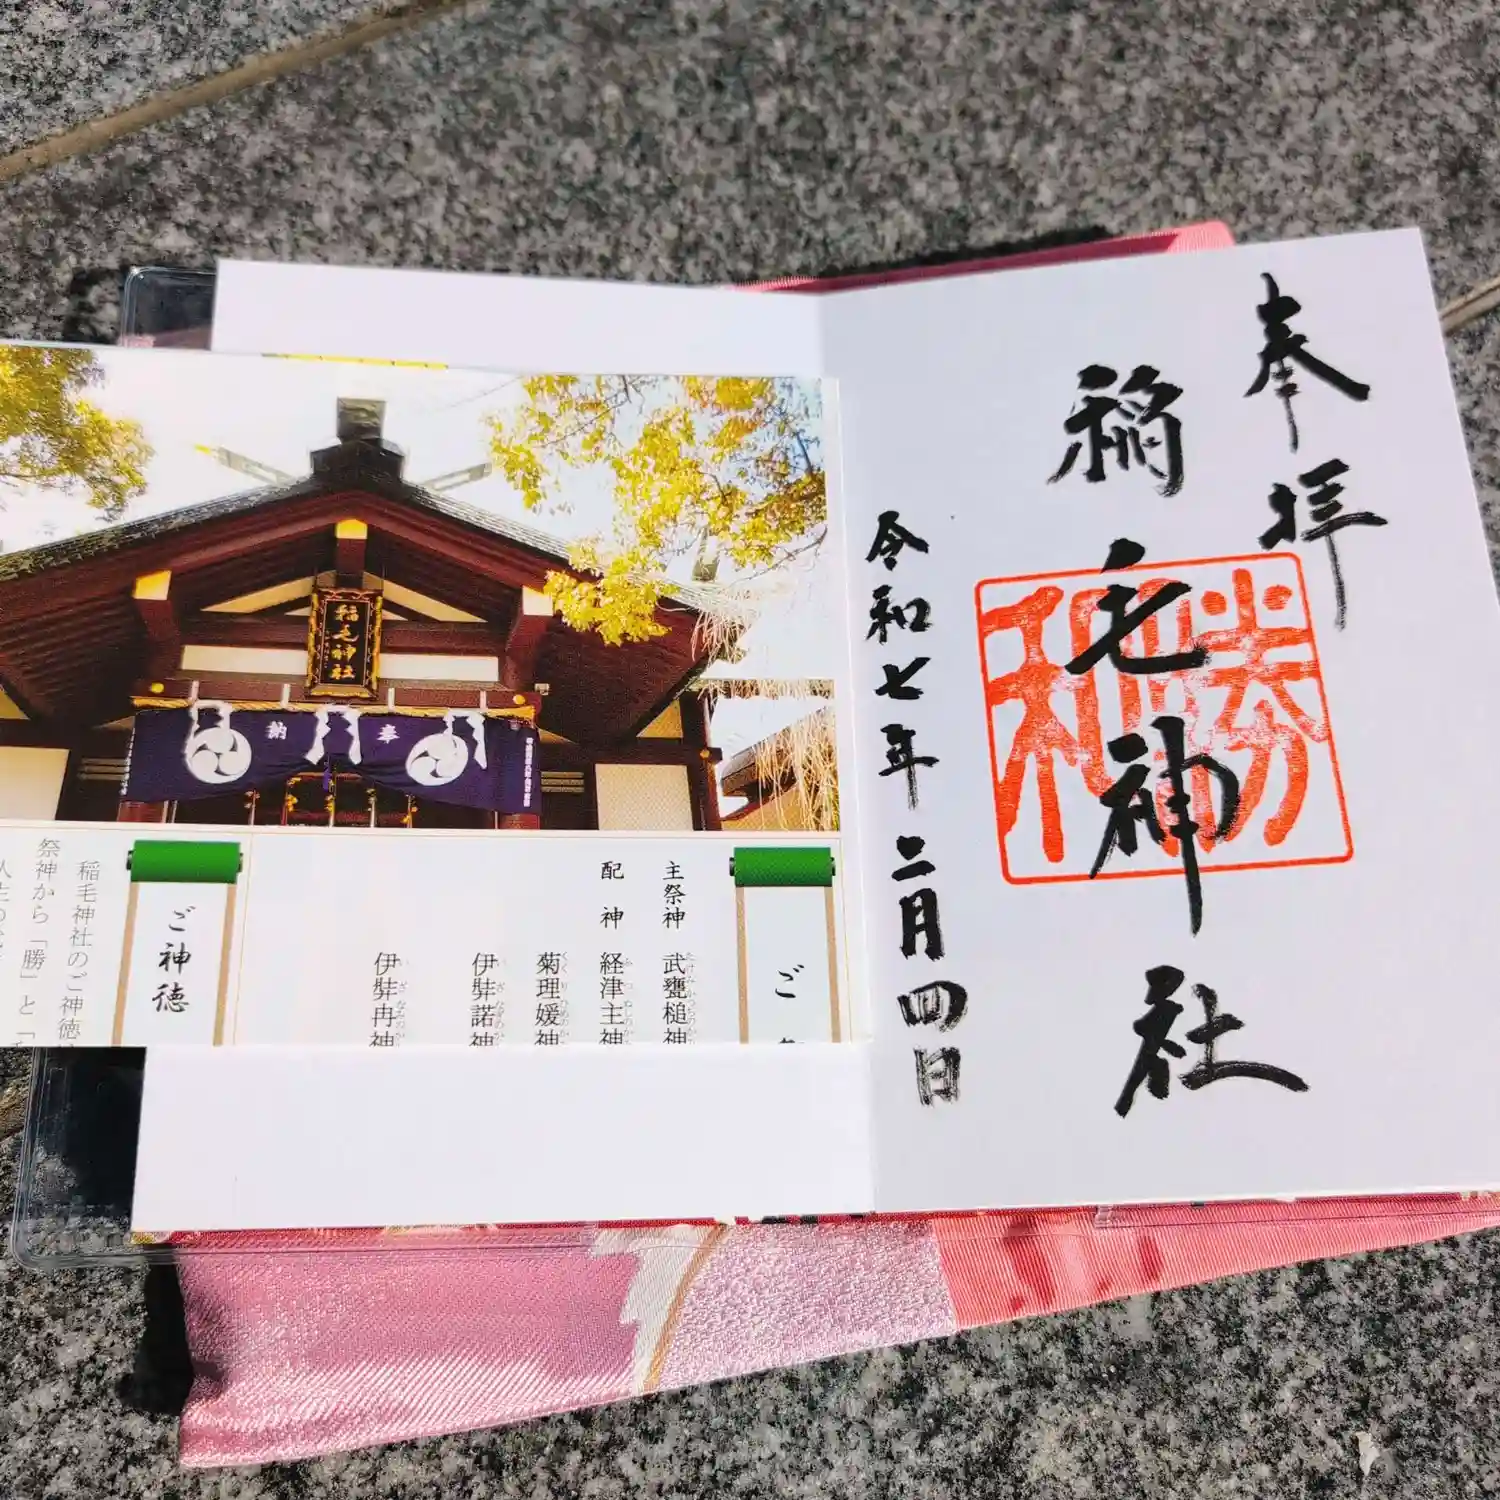 奉拝
稲毛神社
勝
和
令和七年二月四日
稲毛神社
奉納
ご
主祭神 武甕槌神
配神 経津主神
菊理媛神
伊弉諾神
伊弉冉神
ご神徳
稲毛神社のご神徳
祭神から「勝」と「